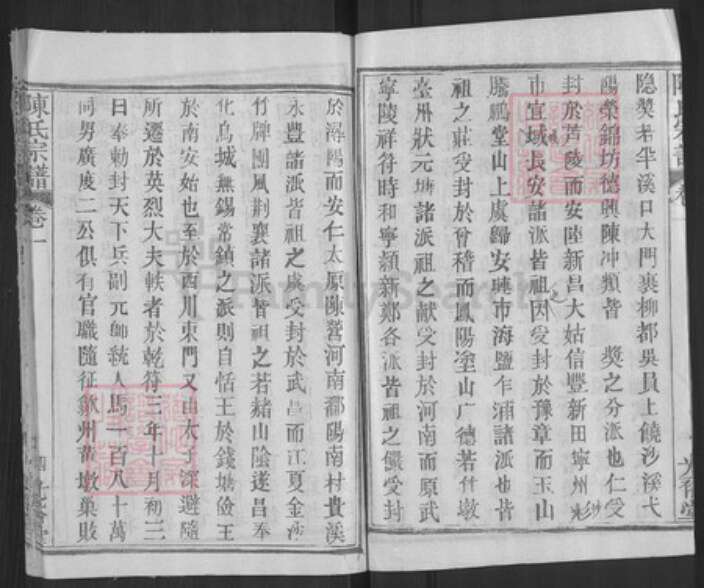 隱奬者半溪口大門裏柳都吳員上饒沙溪弋
陽榮錦坊德興陳冲類皆 奬之分派也仁受
封於芦陵而安陸新昌大姑信豐新田寧州
市宜城長安諸派皆祖因受封於豫章而玉山
騰鵬堂山上虞歸安連市海鹽乍浦諸派也皆
祖之莊受封於會稽而鳳陽塗山广德若什墩
臺州狀元塘諸派祖之献受封於河南而原武
寧陵祥符時和寧頴新鄭各派皆祖之儼受封
於潯陽而安仁太原陳營河南鄱陽南村貴溪
永豐諸派皆祖之虞受封於武昌而江夏金沙
竹牌團風荆襄諸派皆祖之若赭山陰遂昌奉
化烏城無錫常鎮之派則自恬王於錢塘儉王
於南安始也至於西川東門又由太子深避隨
所遷於英烈大夫軼者於乾符三年十月初三
日奉勅封天下兵副元帥統人馬一百八十萬
同男廣度二公俱有官職隨征歙州黄墩巢敗
陳氏宗譜 卷一
FamilySearch